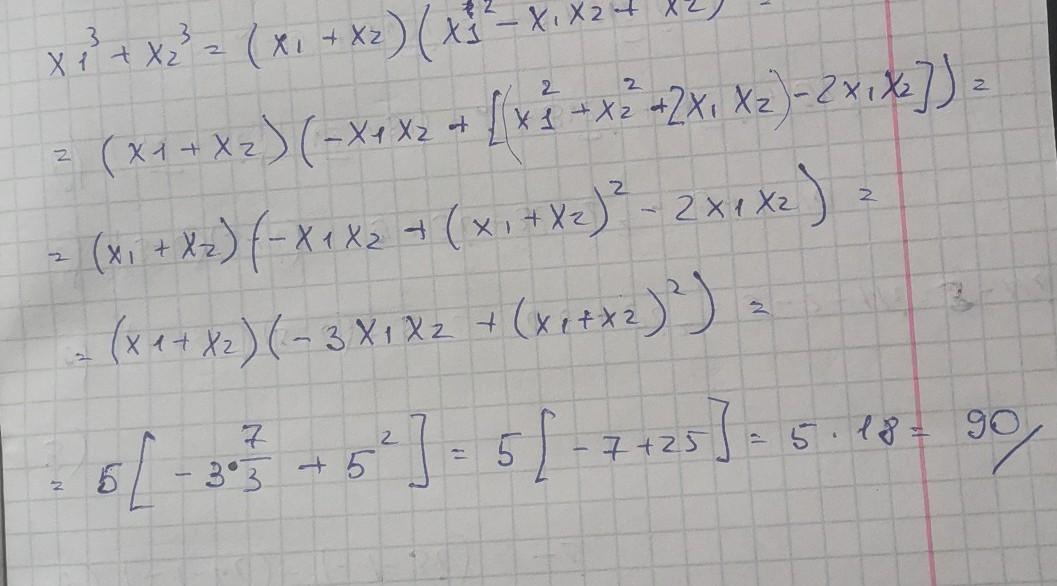 x1³ + x2³ = (x1 + x2)(x1² - x1x2 + x2²) =
= (x1 + x2)(-x1x2 + [(x1² + x2² + 2x1x2) - 2x1x2]) =
= (x1 + x2)(-x1x2 + (x1 + x2)² - 2x1x2) =
= (x1 + x2)(-3x1x2 + (x1 + x2)²) =
= 5[-3·7/3 + 5²] = 5[-7 + 25] = 5 · 18 = 90/